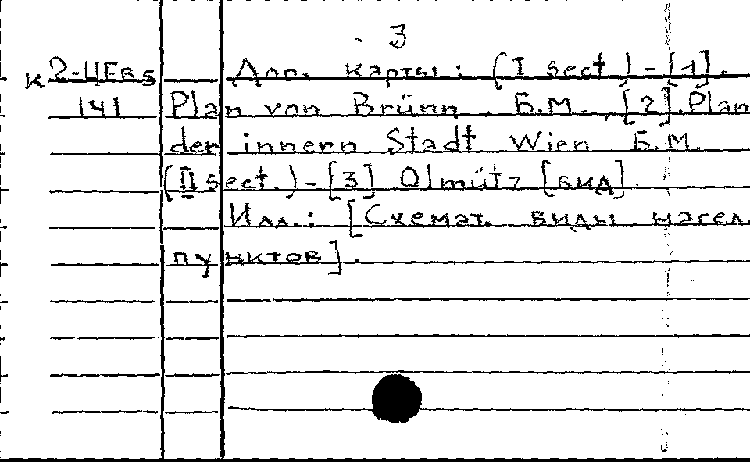 3
К 2-ЦЕв 5 Доп. карты: (I sect.) - [1].
141 Plan von Brünn. Б.М., [2] Plan
der innern Stadt Wien Б.М.
(II sect.) - [3] Olmütz [вид]
Илл.: [Схемат. виды насел.
пунктов].